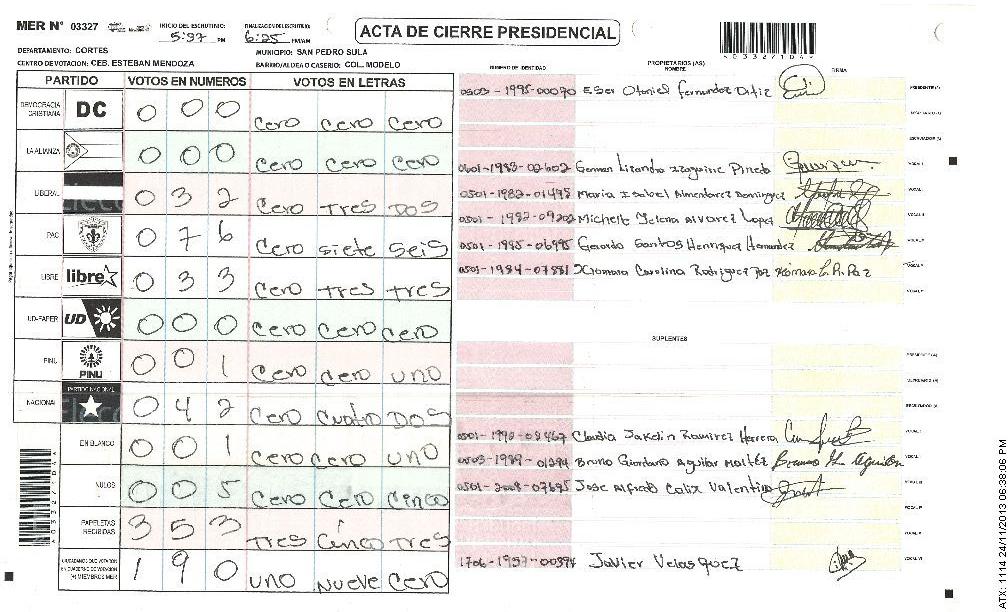 MER N° 03327 INICIO DEL ESCRUTINIO: 5:37 PM FINALIZACION DEL ESCRUTINIO: 6:25 PM/AM
ACTA DE CIERRE PRESIDENCIAL
DEPARTAMENTO: CORTES MUNICIPIO: SAN PEDRO SULA
CENTRO DE VOTACION: CEB. ESTEBAN MENDOZA BARRIO/ALDEA O CASERIO: COL. MODELO
PARTIDO VOTOS EN NUMEROS VOTOS EN LETRAS
DEMOCRACIA CRISTIANA DC 0 0 0 Cero Cero Cero
LA ALIANZA 0 0 0 Cero Cero Cero
LIBERAL 0 3 2 Cero Tres Dos
PAC 0 7 6 Cero Siete Seis
LIBRE libre 0 3 3 Cero Tres Tres
UD-FAPER UD 0 0 0 Cero Cero Cero
PINU PINU 0 0 1 Cero Cero uno
NACIONAL PARTIDO NACIONAL 0 4 2 Cero Cuatro Dos
EN BLANCO 0 0 1 Cero Cero uno
NULOS 0 0 5 Cero Cero Cinco
PAPELETAS RECIBIDAS 3 5 3 Tres Cinco Tres
CIUDADANOS QUE VOTARON EN CUADERNO DE VOTACION (+) MIEMBROS MER 1 9 0 uno Nueve Cero
NUMERO DE IDENTIDAD PROPIETARIOS (AS) NOMBRE FIRMA
0503-1995-00070 Eser Otoniel Fernandez Ortiz PRESIDENTE (A)
SECRETARIO (A)
ESCRUTADOR (A)
German Lizandro Izaguirre Pineda VOCAL I
0501-1982-01495 Maria Isabel Almendarez Dominguez VOCAL
0501-1982-09202 Michelle Yelena Alvarez Lopez VOCAL
0501-1985-06985 Gerardo Santos Henriquez Hernandez VOCAL
0501-1984-07881 Xiomara Carolina Rodriguez Paz Xiomara C. R. Paz VOCAL
VOCAL
SUPLENTES
PRESIDENTE (A)
SECRETARIO (A)
ESCRUTADOR (A)
0501-1990-08467 Claudia Jakelin Ramirez Herrera VOCAL
Bruno Giordano Aguilar VOCAL
Jose Alfredo Calix Valentino VOCAL
VOCAL
VOCAL
1706-1957-00394 Javier Velasquez VOCAL VI
A0332710AA
ATX: 1114-24/11/2013 06:38:06 PM